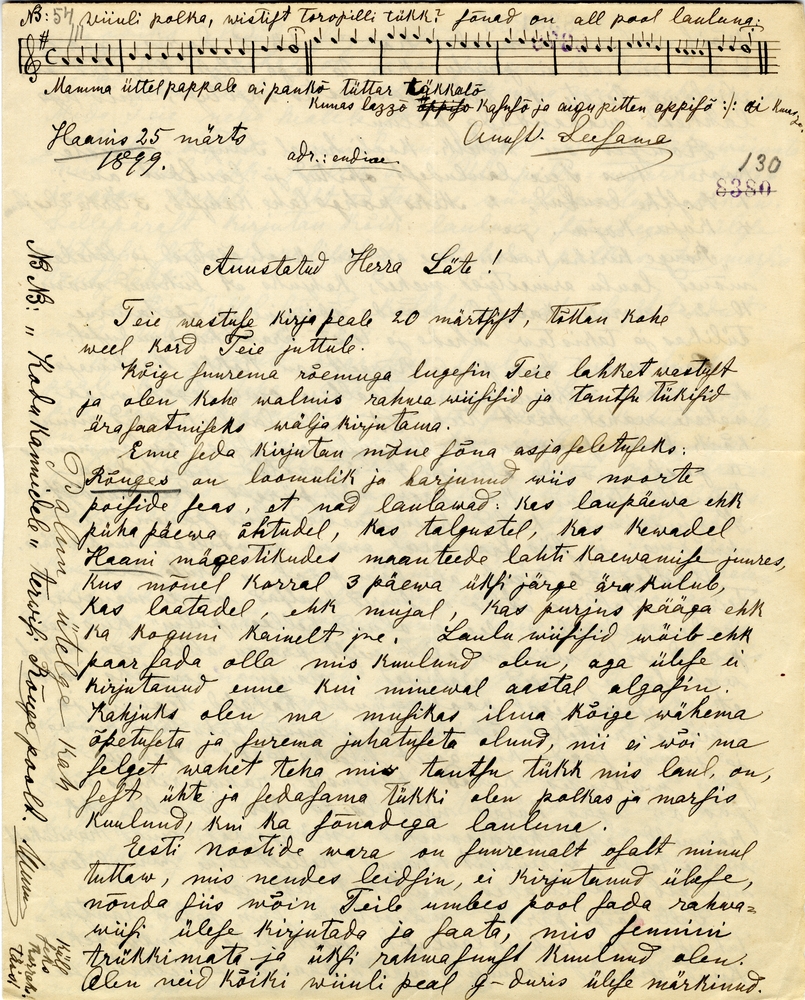 NB: 57, wiiuli polka, wistist toropilli tükk? sõnad on all pool lauluna:
Mamma üttel pappale ai pankõ tüttar täkkalõ
Kunas lazzõ äppisõ Kasusõ ja aigupitten appisõ :/: ai
Haanis 25 märts
1899.
adr.: endine
130
8380
Auustatud Herra Läte!
Teie wastuse kirja peale 20 märtsist, tõttan kohe
weel kord Teie juttule.
Kõige suurema rõemuga lugesin Teie lahket wastust
ja olen kohe walmis rahwa wiisisid ja tantsu tükisid
ärasaatmiseks wälja kirjutama.
Enne seda kirjutan mõne sõna asjaseletuseks:
Rõuges on loomulik ja harjunud wiis noorte
poiside seas, et nad laulawad: kas laupäewa ehk
püha päewa õhtudel, kas talgustel, kas kewadel
Haani mägestikudes maanteede lahti kaewamise juures,
kus mõnel korral 3 päewa üksi järge ära kulub,
kas laatadel, ehk mujal, kas purjus pääga ehk
ka koguni kainelt jne. Laulu wiisisid wõib ehk
paar sada olla mis kuulnud olen, aga ülese ei
kirjutanud enne kui minewal aastal algasin.
Kahjuks olen ma musikas ilma kõige wähema
õpetuseta ja surema juhatuseta olnud, nii ei wõi ma
selget wahet teha mis tantsu tükk mis laul, on,
sest ühte ja sedasama tükki olen polkas ja marsis
kuulnud, kui ka sõnadega lauluna.
Eesti nootide wara on suuremalt osalt minul
tuttaw, mis nendes leidsin, ei kirjutanud ülese,
nõnda siis wõin Teile umbes pool sada rahwa=
wiisi ülese kirjutada ja saata, mis sennini
trükkimata ja üksi rahwasuust kuulnud olen.
Olen neid kõiki wiiuli peal g-duris ülese märkinud.
NB NB: „Kodu kannidele" terwisi Rõuge poolt.
Palun ütelge kah